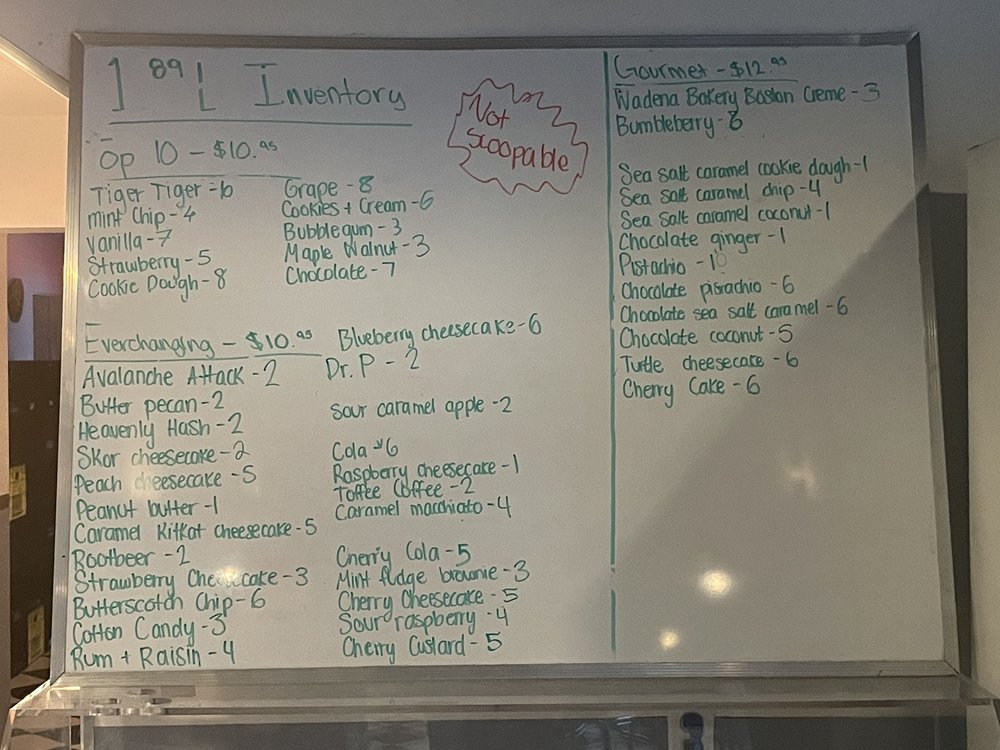 1.89 L Inventory
Not
scoopable
Top 10 - $10.95
Tiger Tiger - 6
mint Chip - 4
Vanilla - 7
Strawberry - 5
Cookie Dough - 8
Grape - 8
Cookies + Cream - 6
Bubblegum - 3
Maple Walnut - 3
Chocolate - 7
Everchanging - $10.95
Avalanche Attack - 2
Butter pecan - 2
Heavenly Hash - 2
Skor cheesecake - 2
Peach cheesecake - 5
Peanut butter - 1
Caramel Kitkat cheesecake - 5
Rootbeer - 2
Strawberry Cheesecake - 3
Butterscotch Chip - 6
Cotton Candy - 3
Rum + Raisin - 4
Blueberry cheesecake - 6
Dr. P - 2
Sour caramel apple - 2
Cola - 6
Raspberry cheesecake - 1
Toffee Coffee - 2
Caramel macchiato - 4
Cherry Cola - 5
Mint fudge brownie - 3
Cherry Cheesecake - 5
Sour raspberry - 4
Cherry Custard - 5
Gourmet - $12.95
Wadena Bakery Boston Creme - 3
Bumbleberry - 8
Sea salt caramel cookie dough - 1
Sea salt caramel chip - 4
Sea salt caramel coconut - 1
Chocolate ginger - 1
Pistachio - 10
Chocolate pistachio - 6
Chocolate sea salt caramel - 6
Chocolate coconut - 5
Turtle cheesecake - 6
Cherry Cake - 6